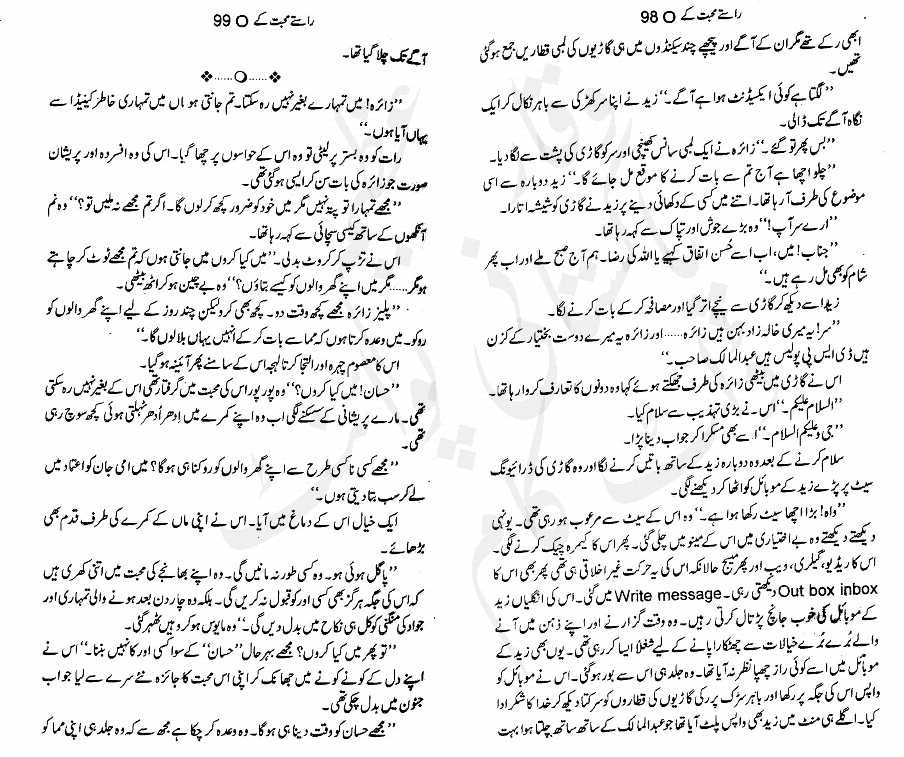 راستے محبت کے O 98
ابھی رکے تھے مگر ان کے آگے اور پیچھے چند سیکنڈوں میں ہی گاڑیوں کی لمبی قطاریں جمع ہو گئی
تھیں۔
’’لگتا ہے کوئی ایکسیڈنٹ ہوا ہے آگے۔‘‘ زید نے اپنا سر کھڑکی سے باہر نکال کر ایک
نگاہ آگے تک ڈالی۔
’’بس پھر تو گئے۔‘‘ زائرہ نے ایک لمبی سانس کھینچی اور سر کو گاڑی کی پشت سے لگا دیا۔
’’چلو اچھا ہے آج تم سے بات کرنے کا موقع مل جائے گا۔‘‘ زید دوبارہ سے اسی
موضوع کی طرف آ رہا تھا۔ اتنے میں کسی کے دکھائی دینے پر زید نے گاڑی کو شیشہ اتارا۔
’’ارے سر آپ!‘‘ وہ بڑے جوش اور تپاک سے کہہ رہا تھا۔
’’جناب! میں، اب اسے حُسن اتفاق کہیے یا اللہ کی رضا۔ ہم آج صبح ملے اور اب پھر
شام کو بھی مل رہے ہیں۔‘‘
زید اسے دیکھ کر گاڑی سے نیچے اتر گیا اور مصافحہ کر کے بات کرنے لگا۔
’’سر! یہ میری خالہ زاد بہن ہیں زائرہ......اور زائرہ یہ میرے دوست بختیار کے کزن
ہیں ڈی ایس پی پولیس ہیں عبدالمالک صاحب۔‘‘
اس نے گاڑی میں بیٹھی زائرہ کی طرف جھکتے ہوئے کہا وہ دونوں کا تعارف کروا رہا تھا۔
’’السلام علیکم۔‘‘ اس نے بڑی تہذیب سے سلام کیا۔
’’جی وعلیکم السلام۔‘‘ اسے بھی مسکرا کر جواب دینا پڑا۔
سلام کرنے کے بعد وہ دوبارہ زید کے ساتھ باتیں کرنے لگا اور وہ گاڑی کی ڈرائیونگ
سیٹ پر پڑے زید کے موبائل کو اٹھا کر دیکھنے لگی۔
’’واہ! بڑا اچھا سیٹ رکھا ہوا ہے۔‘‘ وہ اس کے سیٹ سے مرعوب ہو رہی تھی۔ یونہی
دیکھتے دیکھتے وہ بے اختیاری میں اس کے مینو میں چلی گئی۔ پھر اس کا کیمرہ چیک کرنے لگی۔
اس کا ریڈیو، گیلری، ویب اور پھر مسیج حالانکہ اس کی یہ حرکت غیر اخلاقی ہی تھی پھر بھی اس کا
Out box inbox دیکھتی رہی۔ Write message میں گئی۔ اس کی انگلیاں زید
کے موبائل کی خوب جانچ پڑتال کرتی رہیں۔ وہ وقت گزارنے اور اپنے ذہن میں آنے
والے بُرے بُرے خیالات سے چھٹکارا پانے کے لیے شغلاً ایسا کر رہی تھی۔ یوں بھی زید کے
موبائل میں اسے کوئی راز چھپا نظر نہ آیا تھا۔ وہ جلد ہی اس سے بور ہو گئی۔ اس نے موبائل کو
واپس اس کی جگہ پر رکھا اور باہر سڑک پر رکی گاڑیوں کی قطاروں کو سرکتا دیکھ کر خدا کا شکر ادا
کیا۔ اگلے ہی منٹ میں زید بھی واپس پلٹ آیا تھا جو عبدالمالک کے ساتھ ساتھ چلتا ہوا بہت
راستے محبت کے O 99
آگے تک چلا گیا تھا۔
❖......O......❖
’’زائرہ! میں تمہارے بغیر نہیں رہ سکتا۔ تم جانتی ہو ناں میں تمہاری خاطر کینیڈا سے
یہاں آیا ہوں۔‘‘
رات کو وہ بستر پر لیٹی تو وہ اس کے حواسوں پر چھا گیا۔ اس کی وہ افسردہ اور پریشان
صورت جو زائرہ کی بات سن کر ایسی ہو گئی تھی۔
’’مجھے تمہارا تو پتہ نہیں مگر میں خود کو ضرور کچھ کر لوں گا۔ اگر تم مجھے نہ ملیں تو؟‘‘ وہ نم
آنکھوں کے ساتھ کیسی سچائی سے کہہ رہا تھا۔
اس نے تڑپ کر کروٹ بدلی۔ ’’میں کیا کروں میں جانتی ہوں کہ تم مجھے ٹوٹ کر چاہتے
ہو مگر......مگر میں اپنے گھر والوں کو کیسے بتاؤں؟‘‘ وہ بے چین ہو کر اٹھ بیٹھی۔
’’پلیز زائرہ مجھے کچھ وقت دو۔ کچھ بھی کرو لیکن چند روز کے لیے اپنے گھر والوں کو
روکو۔ میں وعدہ کرتا ہوں کہ مما سے بات کر کے انہیں یہاں بلا لوں گا۔‘‘
اس کا معصوم چہرہ اور التجا کرتا لہجہ اس کے سامنے پھر آئینہ ہو گیا۔
’’حسان! میں کیا کروں؟‘‘ وہ پور پور اس کی محبت میں گرفتار تھی اس کے بغیر نہیں رہ سکتی
تھی۔ مارے پریشانی کے سسکنے لگی اب وہ اپنے کمرے میں اِدھر اُدھر ٹہلتی ہوئی کچھ سوچ رہی
تھی۔
’’مجھے کسی نا کسی طرح سے اپنے گھر والوں کو روکنا ہی ہو گا؟ میں امی جان کو اعتماد میں
لے کر سب بتا دیتی ہوں۔‘‘
ایک خیال اس کے دماغ میں آیا۔ اس نے اپنی ماں کے کمرے کی طرف قدم بھی
بڑھائے۔
’’پاگل ہوئی ہو۔ وہ کسی طور نہ مانیں گی۔ وہ اپنے بھانجے کی محبت میں اتنی کھری ہیں
کہ اس کی جگہ ہرگز بھی کسی اور کو قبول نہ کریں گی۔ بلکہ وہ چار دن بعد ہونے والی تمہاری اور
جواد کی منگنی کو کل ہی نکاح میں بدل دیں گی۔‘‘ وہ مایوس ہو کر وہیں ٹھہر گئی۔
’’تو پھر میں کیا کروں؟ مجھے بہرحال ’’حسان‘‘ کے سوا کسی اور کا نہیں بننا۔‘‘ اس نے
اپنے دل کے کونے کونے میں جھانک کر اپنی اس محبت کا جائزہ نئے سرے سے لیا جو اب
جنون میں بدل چکی تھی۔
’’مجھے حسان کو وقت دینا ہی ہو گا۔ وہ وعدہ کر چکا ہے مجھ سے کہ وہ جلد ہی اپنی مما کو